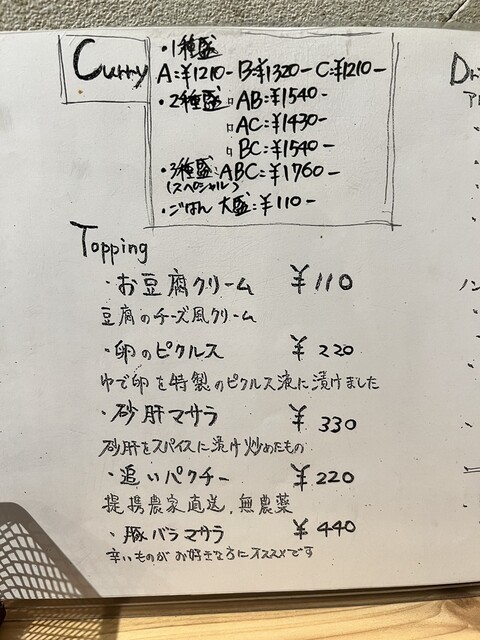 Curry
・1種盛
A:¥1210- B:¥1320- C:¥1210-
・2種盛 □AB:¥1540-
□AC:¥1430-
□BC:¥1540-
・3種盛:ABC:¥1760-
(スペシャル)
・ごはん 大盛:¥110-
Topping
・お豆腐クリーム ¥110
豆腐のチーズ風クリーム
・卵のピクルス ¥220
ゆで卵を特製のピクルス液に漬けました
・砂肝マサラ ¥330
砂肝をスパイスに漬け炒めたもの
・追いパクチー ¥220
提携農家直送、無農薬
・豚バラマサラ ¥440
辛いものがお好きな方にオススメです